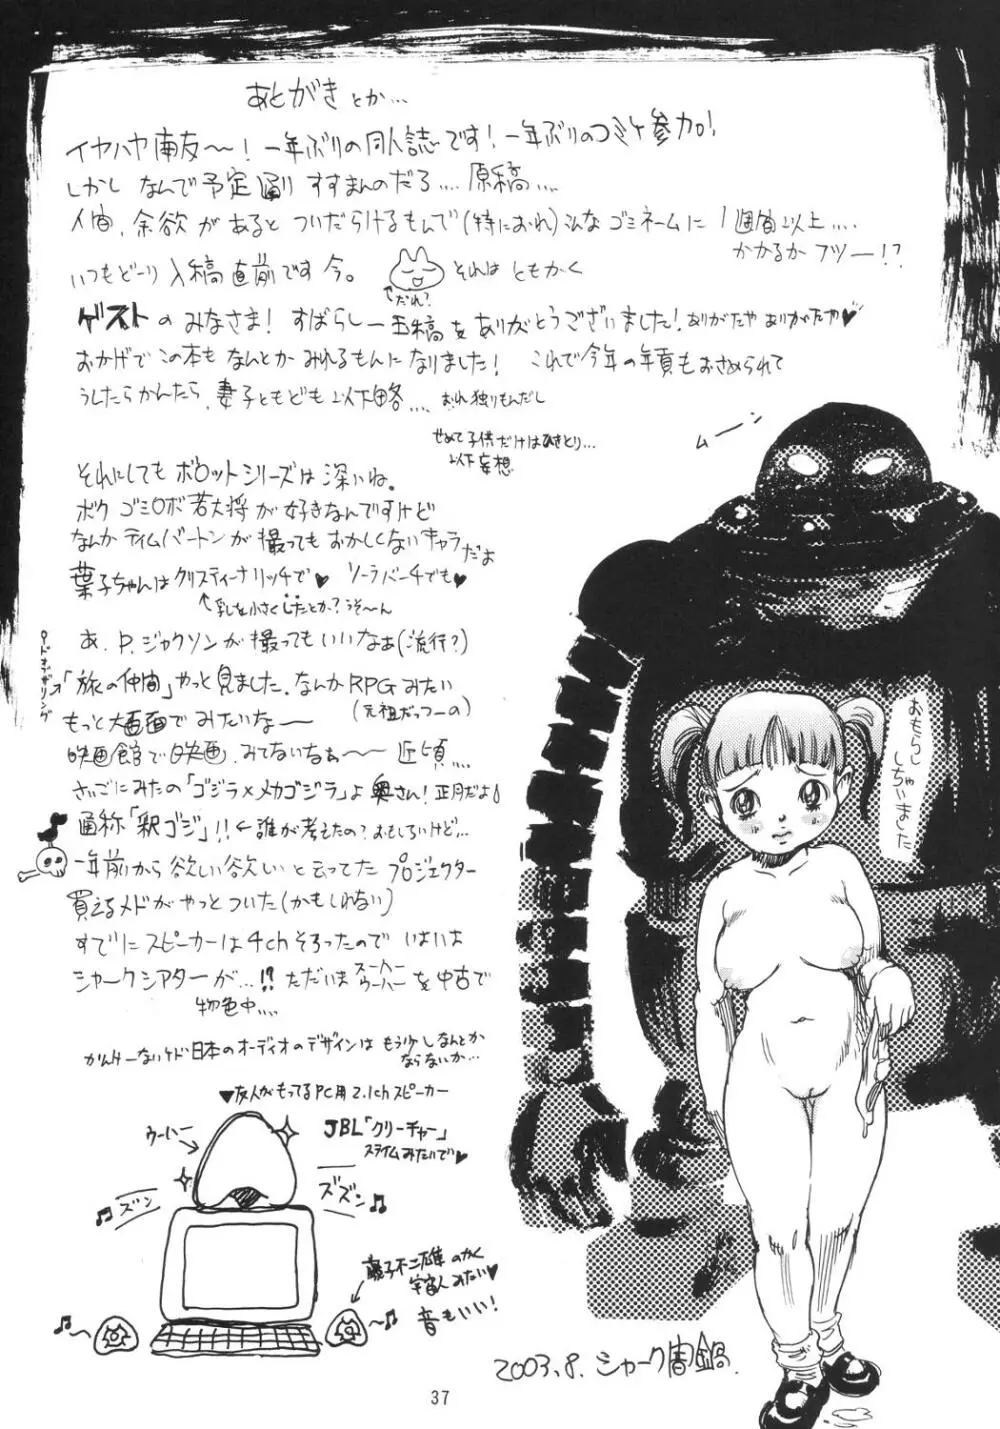 あとがきとか…
イヤハヤ南友〜！一年ぶりの同人誌です！一年ぶりのコミケ参加！
しかし なんで予定通り すすまんのだろ…. 原稿….
人間、余欲があると ついだらけるもんで(特におれ)こんな ゴミネームに 1週間以上….
かかるか フツー!?
いつもどーり 入稿直前です 今。
それは ともかく
↑だれ？
ゲストの みなさま！ すばらしー玉稿を ありがとうございました！ありがたや ありがたや♥
おかげで この本も なんとか みれるもんに なりました！ これで今年の年貢もおさめられて
うしたらかんたら、妻子ともども 以下略…. おれ独りもんだし
せめて子供だけはひきとり…
以下妄想
ムーン
それにしても ボロットシリーズは 深いね。
ボク ゴミロボ若大将が 好きなんですけど
なんか ティムバートンが 撮っても おかしくない キャラだよ
葉子ちゃんは クリスティーナリッチで♥ ソーラバーチでも♥
↑乳を小さくしたとか？うそ〜ん
あ、P.ジャクソンが 撮ってもいいなぁ(流行？)
ロードオブザリング
「旅の仲間」やっと見ました。なんかRPGみたい
(元祖だっつーの)
もっと大画面で みたいなー
映画館で映画、みてないなぁ〜〜 近頃….
さいごにみたの「ゴジラ×メカゴジラ」よ 奥さん！正月だよ
通称「釈ゴジ」!! ←誰が考えたの？おもしろいけど…
一年前から 欲しい欲しい と云ってた プロジェクター
買えるメドが やっとついた(かもしれない)
すでに スピーカーは 4ch そろったので いよいよ
シャークシアターが…!? ただいま スーパーウーハー を中古で
物色中….
かんけーないけど 日本のオーディオのデザインは もう少しなんとか
ならないか…
♥友人がもってるPC用2.1chスピーカー
JBL「クリーチャー」
スライムみたいで♥
ウーハー→
ズン
ズズン
藤子不二雄 のかく
宇宙人みたい♥
音もいい！
2003.8. シャーク闇鍋
37